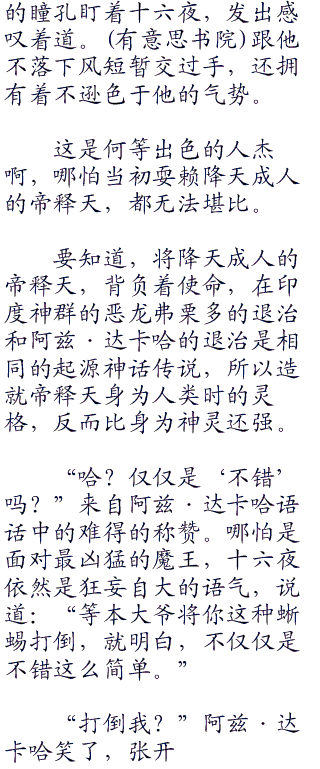 的瞳孔盯着十六夜，发出感
叹着道。(有意思书院)跟他
不落下风短暂交过手，还拥
有着不逊色于他的气势。
这是何等出色的人杰
啊，哪怕当初耍赖降天成人
的帝释天，都无法堪比。
要知道，将降天成人的
帝释天，背负着使命，在印
度神群的恶龙弗栗多的退治
和阿兹·达卡哈的退治是相
同的起源神话传说，所以造
就帝释天身为人类时的灵
格，反而比身为神灵还强。
“哈？仅仅是‘不错’
吗？”来自阿兹·达卡哈语
话中的难得的称赞。哪怕是
面对最凶猛的魔王，十六夜
依然是狂妄自大的语气，说
道：“等本大爷将你这种蜥
蜴打倒，就明白，不仅仅是
不错这么简单。”
“打倒我？”阿兹·达
卡哈笑了，张开